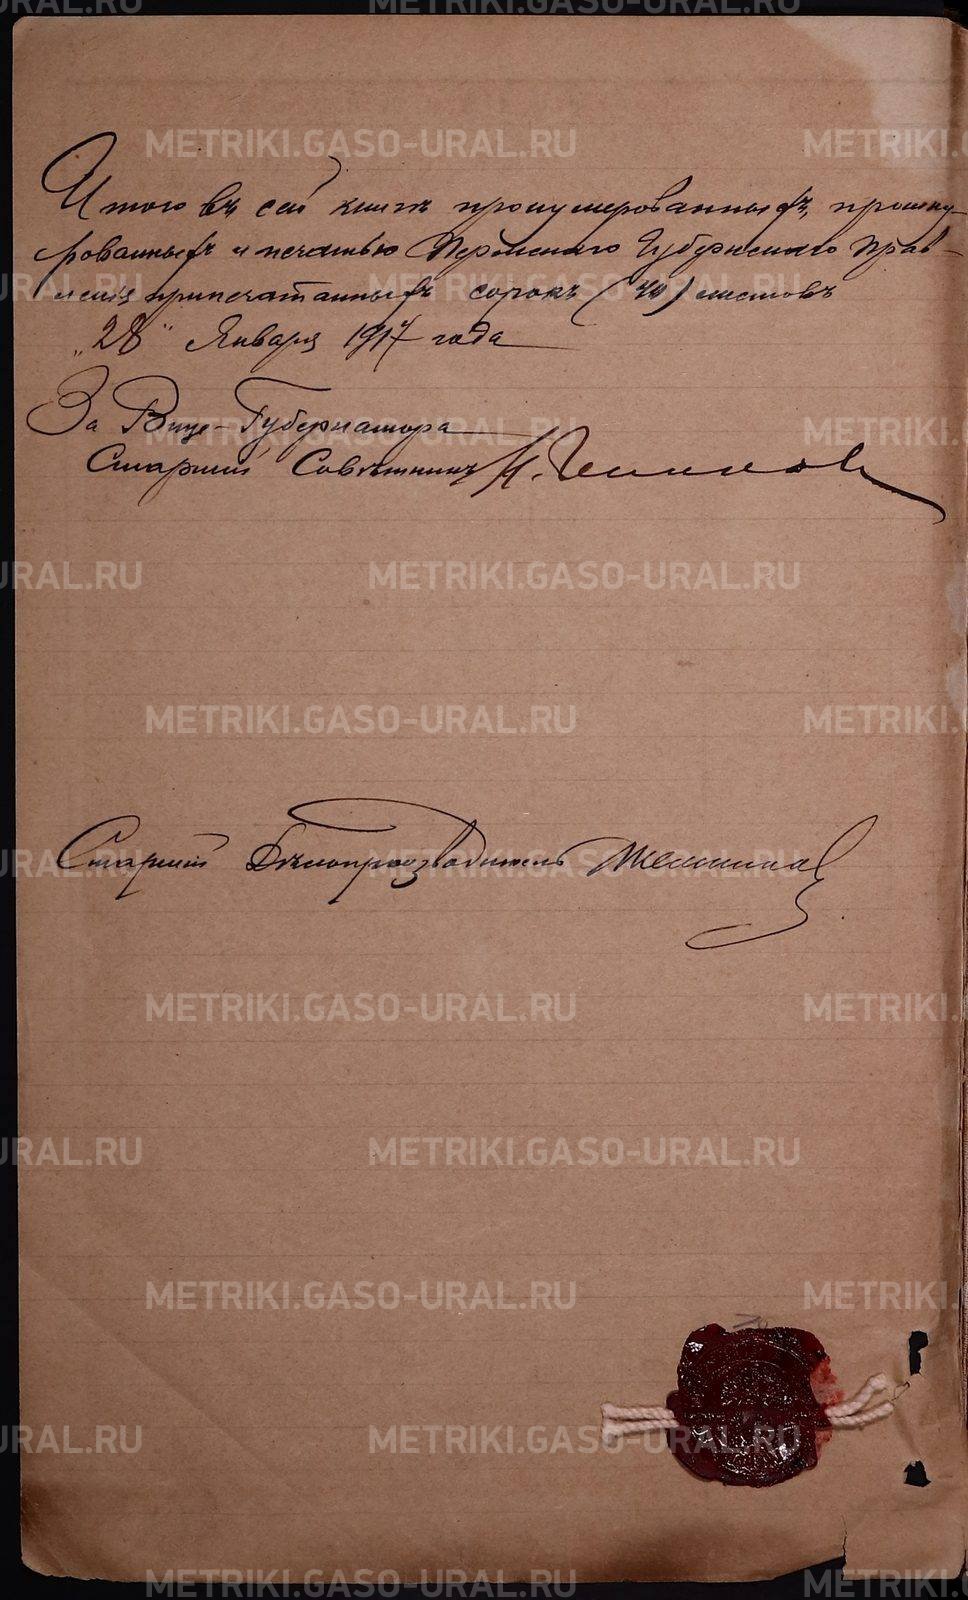 Итого въ сей книгѣ пронумерованныхъ, прошну-
рованныхъ и печатью Пермскаго Губернскаго Прав-
ленія припечатанныхъ сорокъ (40) листовъ
"28" Января 1917 года
За Вице-Губернатора
Старшій Совѣтникъ Н.
Старшій Дѣлопроизводитель
METRIKI.GASO-URAL.RU